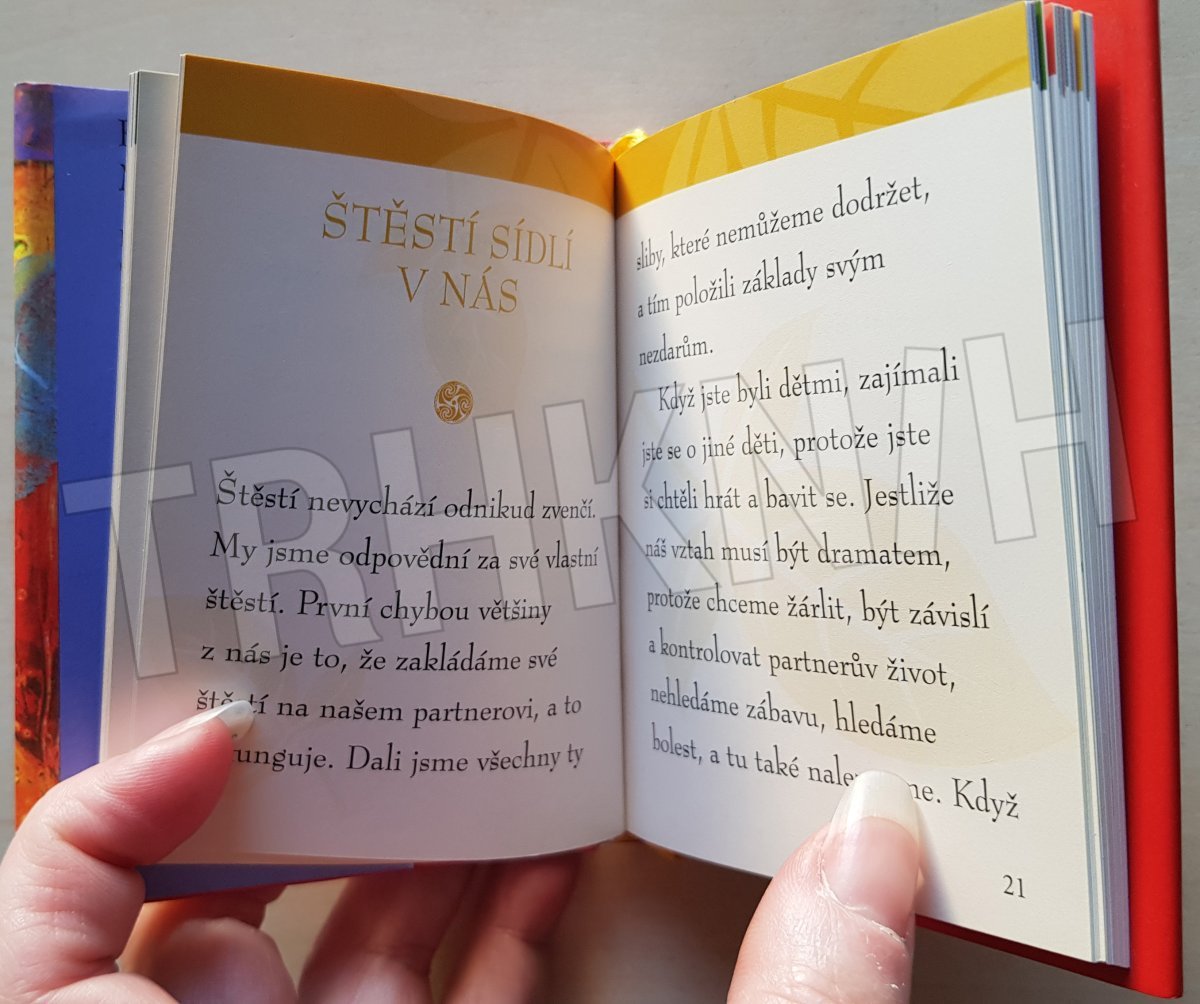 ŠTĚSTÍ SÍDLÍ
V NÁS
Štěstí nevychází odnikud zvenčí.
My jsme odpovědní za své vlastní
štěstí. První chybou většiny
z nás je to, že zakládáme své
štěstí na našem partnerovi, a to
Dali jsme všechny ty
sliby, které nemůžeme dodržet,
a tím položili základy svým
nezdarům.
Když jste byli dětmi, zajímali
jste se o jiné děti, protože jste
si chtěli hrát a bavit se. Jestliže
náš vztah musí být dramatem,
protože chceme žárlit, být závislí
a kontrolovat partnerův život,
nehledáme zábavu, hledáme
bolest, a tu také Když
21
TRHKNIH